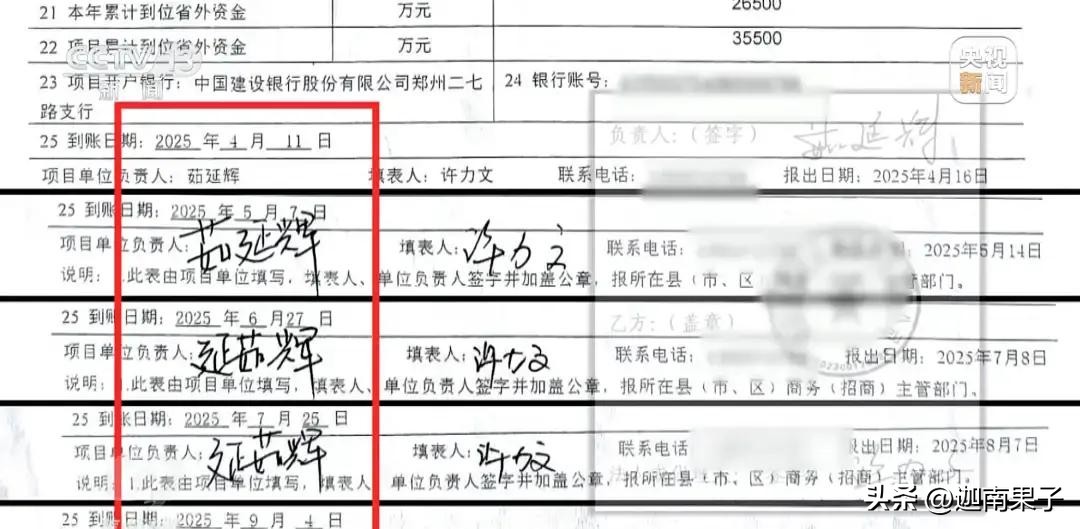 21 本年累计到位省外资金 万元 26500
22 项目累计到位省外资金 万元 35500
CCTV 13
新闻
央视
新闻
23 项目开户银行:中国建设银行股份有限公司郑州二七路支行
24 银行账号:
负责人:(签字) 茹延辉
25 到账日期: 2025 年 4 月 11 日
项目单位负责人:茹延辉 填表人:许力文 联系电话: 报出日期:2025年4月16日
25 到账日期: 2025 年 5 月 7 日
项目单位负责人: 茹延辉 填表人: 许力文 联系电话: 2025年5月14日
说明:1.此表由项目单位填写,填表人、单位负责人签字并加盖公章,报所在县(市、区) 主管部门。
25 到账日期: 2025 年 6 月 27 日
乙方:(盖章)
项目单位负责人: 延茹辉 填表人: 许力文 联系电话: 报出日期:2025年7月8日
说明:1.此表由项目单位填写,填表人、单位负责人签字并加盖公章,报所在县(市、区)商务(招商)主管部门。
25 到账日期: 2025 年 7 月 25 日
项目单位负责人: 延茹辉 填表人: 许力文 联系电话 报出日期:2025年8月7日
说明:1.此表由项目单位填写,填表人、单位负责人签字并加盖公章,报所在县(市、区)商务(招商)主管部门。
25 到账日期: 2025 年 9 月 4 日
头条 @迦南果子